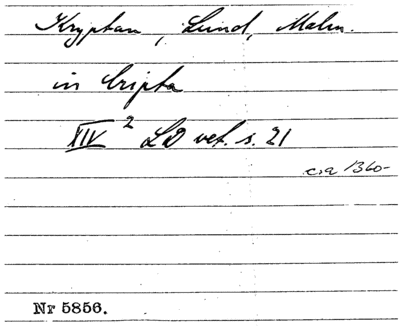 Kryptan, Lund, Malm.
in cripta
XIV 2 LD vet. s. 21
c:a 1360-
Nr 5856.